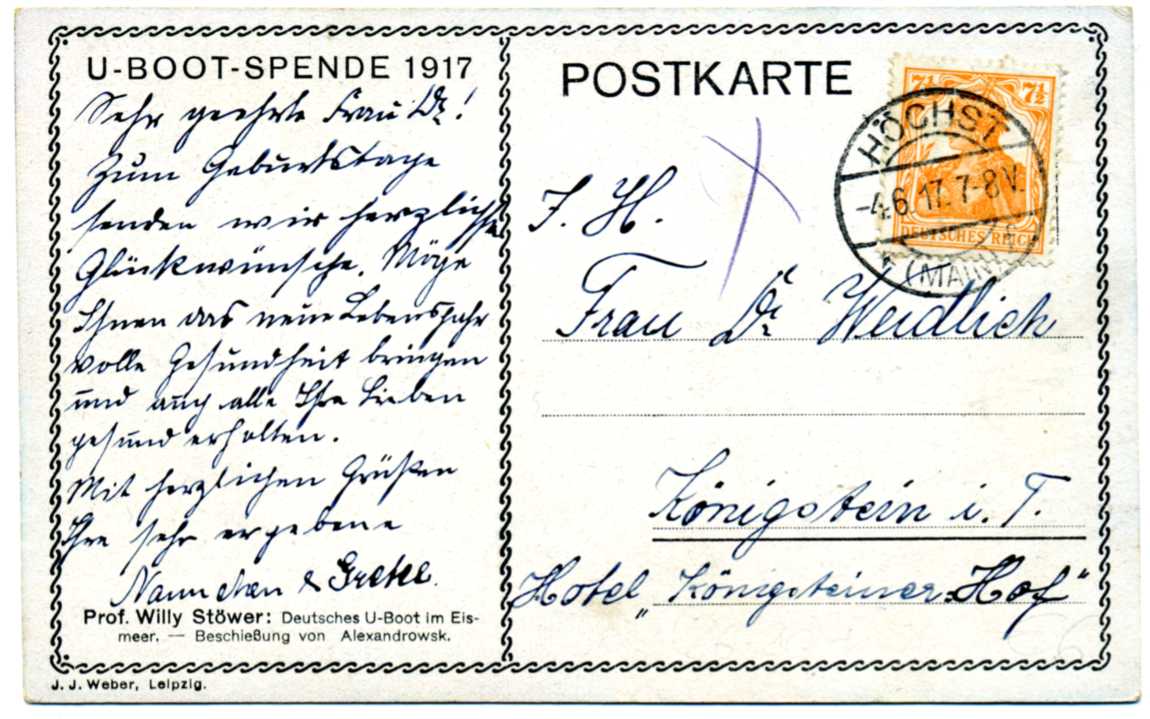 U-BOOT-SPENDE 1917
Sehr geehrte Frau Dr!
Zum Geburtstage
senden wir herzlichste
Glückwünsche. Möge
Ihnen das neue Lebensjahr
volle Gesundheit bringen
und auch alle Ihre Lieben
gesund erhalten.
Mit herzlichen Grüßen
Ihre sehr ergebene
Nannchen & Gretel.
Prof. Willy Stöwer: Deutsches U-Boot im Eis-
meer. — Beschießung von Alexandrowsk.
J. J. Weber, Leipzig.
POSTKARTE
7½ 7½
DEUTSCHES REICH
HÖCHST
-4.6.17. 7-8 V.
* (MAIN)
J. H.
Frau Dr Weidlich
Königstein i. T.
Hotel „Königsteiner Hof"